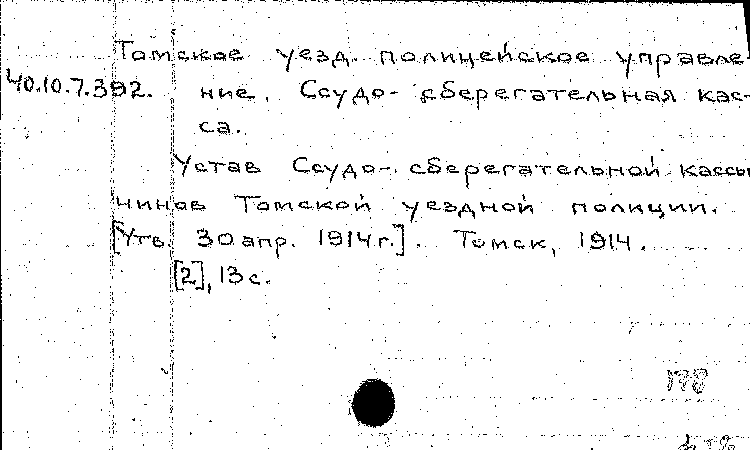 Томское уезд. полицейское управле-
40.10.7.392. ние. Ссудо-сберегательная кас-
са.
Устав Ссудо-сберегательной кассы
чинов Томской уездной полиции.
[Утв. 30 апр. 1914 г.]. Томск, 1914.
[2], 13 с.